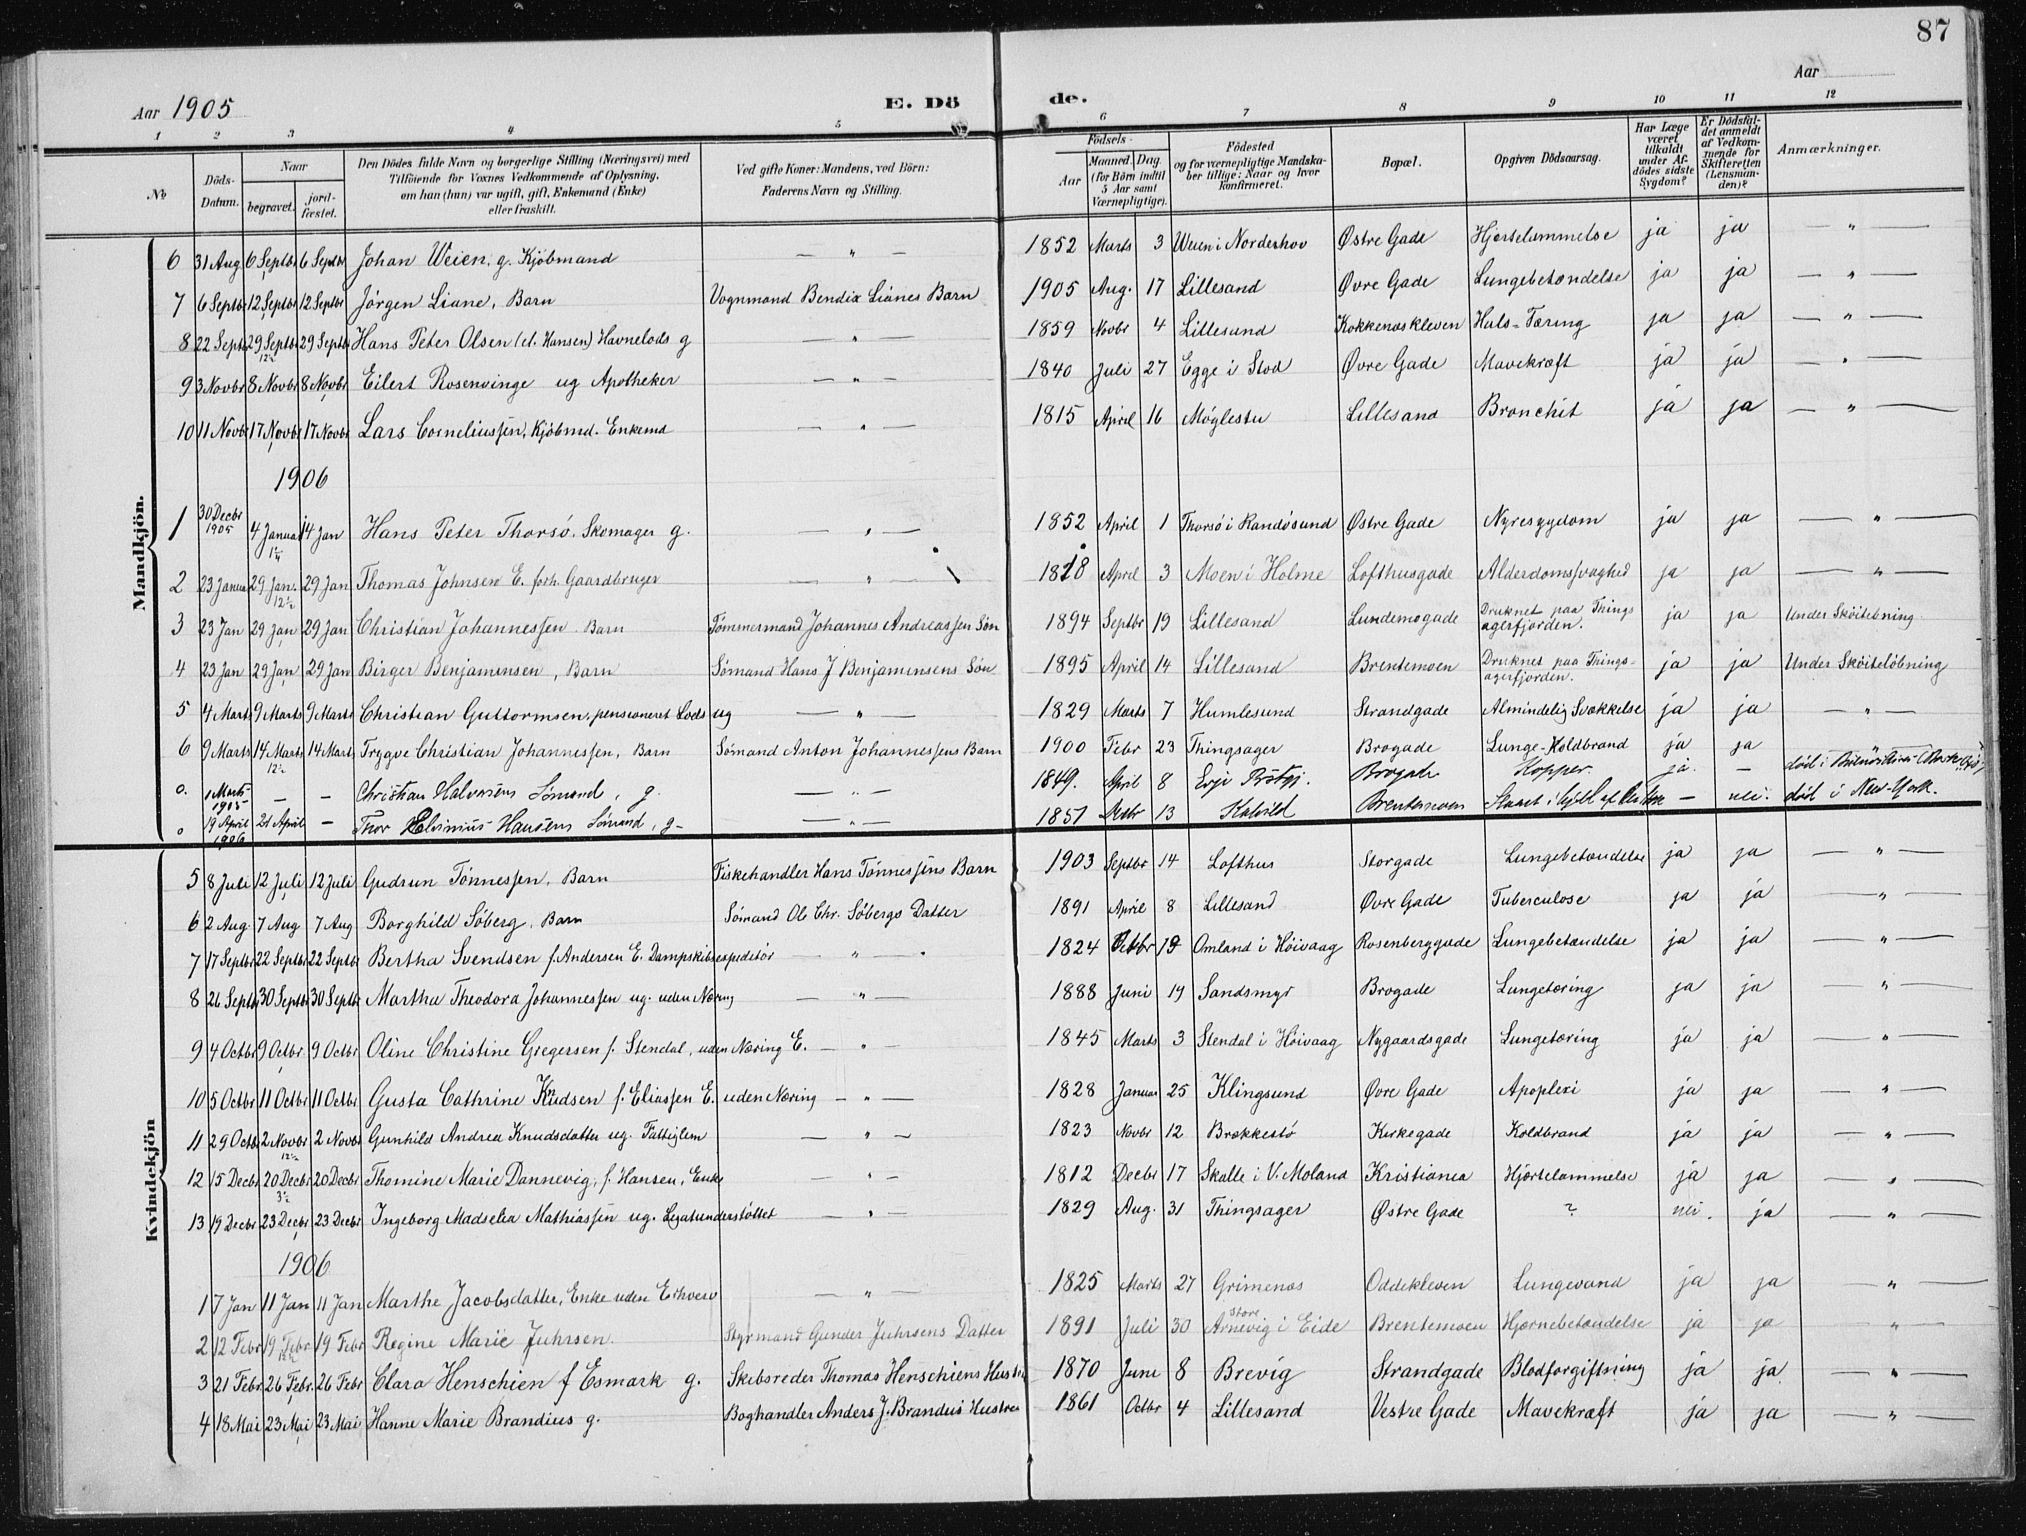 87
Aar 1905
E. Dö de.
Aar
1 2 3 4 5 6 7 8 9 10 11 12
No.
Döds-Datum.
Naar
begravet.
jordfæstet.
Den Dödes fulde Navn og borgerlige Stilling (Næringsvei) med
Tilföiende for Voxnes Vedkommende af Oplysning,
om han (hun) var ugift, gift, Enkemand (Enke)
eller fraskilt.
Ved gifte Koner: Mandens, ved Börn:
Faderens Navn og Stilling.
Födsels-
Aar
Maaned. Dag.
(for Börn indtil
5 Aar samt
Værnepligtige).
Födested
og for værnepligtige Mandskaber tillige: Naar og hvor
konfirmeret.
Bopæl.
Opgiven Dödsaarsag.
Har Læge
været
tilkaldt
under Afdödes sidste
Sygdom?
Er Dödsfaldet anmeldt
af Vedkommende for
Skifteretten
(Lensmanden)?
Anmærkninger.
Mandkjön.
6 31 Aug 6 Septbr 6 Septbr Johan Weien, g. Kjöbmand — " — 1852 Marts 3 Weien i Norderhov Østre Gade Hjertelammelse ja ja — " —
7 6 Septbr 12 Septbr 12 Septbr Jörgen Liane, Barn Vognmand Bendix Lianes Barn 1905 Aug. 17 Lillesand Øvre Gade Lungebetændelse ja ja — " —
8 22 Septbr 29 Septbr 12½ 29 Septbr Hans Peter Olsen (el. Hansen) Havnelods g — " — 1859 Novbr 4 Lillesand Kokkenæskleven Hals-Tæring ja ja — " —
9 3 Novbr 8 Novbr 8 Novbr Eilert Rosenvinge ug Apotheker — " — 1840 Juli 27 Egge i Stod Øvre Gade Mavekræft ja ja — " —
10 11 Novbr 17 Novbr 17 Novbr Lars Corneliussen, Kjöbmd. Enkemd — " — 1815 April 16 Möglestu Lillesand Bronchit ja ja — " —
1906
1 30 Decbr 1905 4 Januar 4 Jan Hans Peter Thorsö, Skomager g. — " — 1852 April 1 Thorsö i Randösund Østre Gade Nyresygdom ja ja — " —
2 23 Januar 29 Jan. 12½ 29 Jan Thomas Johnsen E. forh. Gaardbruger — " — 1818 April 3 Moen i Holme Lofthusgade Alderdomssvaghed ja ja — " —
3 23 Jan 29 Jan 29 Jan Christian Johannessen Barn Tömmermand Johannes Andreassen Sön 1894 Septbr 19 Lillesand Lundemogade Druknet paa Thingsagerfjorden. ja ja Under Sköitelöbning.
4 23 Jan 29 Jan 29 Jan Birger Benjaminsen, Barn Sömand Hans J Benjaminsens Sön 1895 April 14 Lillesand Brentemoen Druknet paa Thingsagerfjorden. ja ja Under Sköitelöbning
5 4 Marts 9 Marts 9 Marts Christian Guttormsen, pensioneret Lods ug — " — 1829 Marts 7 Humlesund Strandgade Almindelig Svækkelse ja ja — " —
6 9 Marts 14 Marts 12½ 14 Marts Trygve Christian Johannessen, Barn Sömand Anton Johannessens Barn 1900 Febr 23 Thingsager Brogade Lunge-Koldbrand ja ja
o. 1 Marts 1905 — — Christian Halvorsen Sömand, g. — " — 1849. April 8 Brogade Kopper. ja. — död i
o 19 April 1906 21 April — Thor Hansen Sömand, g — " — 1857 13 Brentemoen — nei. död i New-York.
Kvindekjön
5 8 Juli 12 Juli 12 Juli Gudrun Tönnessen, Barn Fiskehandler Hans Tönnessens Barn 1903 Septbr 14 Lofthus Storgade Lungebetændelse ja ja — " —
6 2 Aug 7 Aug 7 Aug Borghild Söberg, Barn Sömand Ole Chr. Söbergs Datter 1891 April 8 Lillesand Øvre Gade Tuberculose ja ja — " —
7 17 Septbr 22 Septbr 22 Septbr Bertha Svendsen f. Andersen E. Dampskibsexpeditör — " — 1824 Octbr 19 Omland i Höivaag Rosenberggade Lungebetændelse ja ja — " —
8 26 Septbr 30 Septbr 30 Septbr Martha Theodora Johannessen ug. uden Næring — " — 1888 Juni 19 Sandsmyr Brogade Lungetæring ja ja — " —
9 4 Octbr 9 Octbr 9 Octbr Oline Christine Gregersen f. Stendal, uden Næring E. — " — 1845 Marts 3 Stendal i Höivaag Nygaardsgade Lungetæring ja ja — " —
10 5 Octbr 11 Octbr 11 Octbr Gusta Cathrine Knudsen f. Eliassen E. uden Næring — " — 1828 Januar 25 Klingsund Øvre Gade Apoplexi ja ja — " —
11 29 Octbr 2 Novbr 12½ 2 Novbr Gunhild Andrea Knudsdatter ug. Fattiglem — " — 1823 Novbr 12 Brækkestö Kirkegade Koldbrand ja ja — " —
12 15 Decbr 20 Decbr 3½ 20 Decbr Thomine Marie Dannevig, f. Hansen, Enke — " — 1812 Decbr 17 Skalle i V. Moland Kristiania Hjertelammelse ja ja — " —
13 19 Decbr 23 Decbr 23 Decbr Ingeborg Madselia Mathiassen ug. Legatunderstöttet — " — 1829 Aug. 31 Thingsager Østre Gade ? nei. ja — " —
1906
1 7 Jan 11 Jan 11 Jan Marthe Jacobsdatter, Enke uden Erhverv — " — 1825 Marts 27 Grimenæs Oddekleven Lungevand ja ja — " —
2 12 Febr 19 Febr 12½ 19 Febr Regine Marie Juhrsen. Styrmand Gunder Juhrsens Datter 1891 Juli 30 Store Arnevig i Eide Brentemoen Hjernebetændelse ja ja — " —
3 21 Febr 26 Febr. 26 Febr Clara Henschien f Esmark g. Skibsreder Thomas Henschiens Hustru 1870 Juni 8 Brevig Strandgade Blodforgiftning ja ja — " —
4 18 Mai 23 Mai 23 Mai Hanne Marie Brandius g. Boghandler Anders J. Brandius Hustru 1861 Octbr 4 Lillesand Vestre Gade Mavekræft ja ja — " —